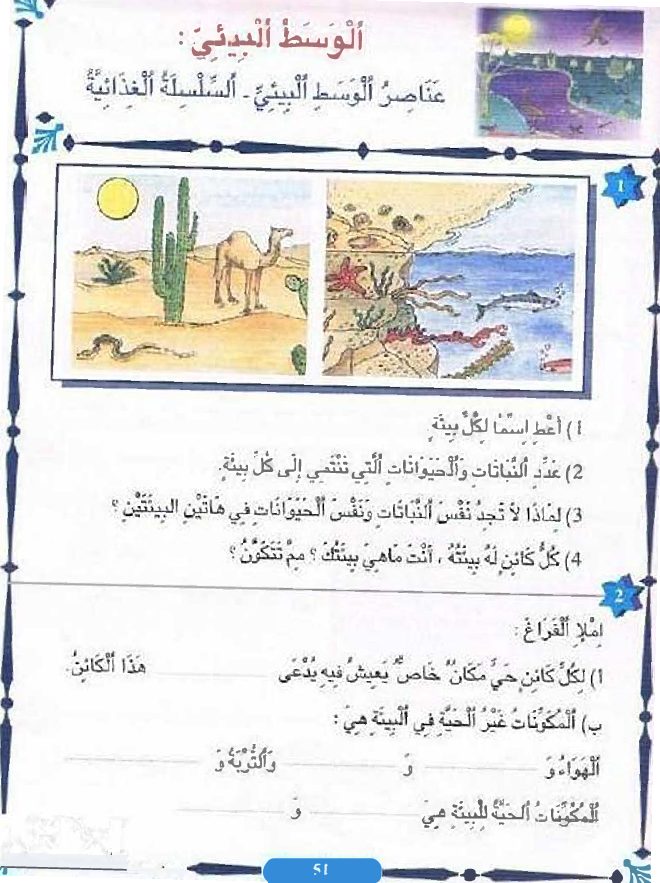 اَلْوَسَطُ اَلْبِيئِيُّ :
عَنَاصِرُ اَلْوَسَطِ اَلْبِيئِيِّ - اَلسِّلْسِلَةُ اَلْغِذَائِيَّةُ
1
1) أَعْطِ اِسْمًا لِكُلِّ بِيئَةٍ.
2) عَدِّدِ اَلنَّبَاتَاتِ وَاَلْحَيَوَانَاتِ اَلَّتِي تَنْتَمِي إِلَى كُلِّ بِيئَةٍ.
3) لِمَاذَا لاَ تَجِدُ نَفْسَ اَلنَّبَاتَاتِ وَنَفْسَ اَلْحَيَوَانَاتِ فِي هَاتَيْنِ البِيئَتَيْنِ ؟
4) كُلُّ كَائِنٍ لَهُ بِيئَتُهُ ، أَنْتَ مَاهِيَ بِيئَتُكَ ؟ مِمَّ تَتَكَوَّنُ ؟
2
اِمْلَإِ اَلْفَرَاغَ :
أ) لِكُلِّ كَائِنٍ حَيٍّ مَكَانٌ خَاصٌّ يَعِيشُ فِيهِ يُدْعَى ــــــــ هَذَا اَلْكَائِنُ.
ب) اَلْمُكَوِّنَاتُ غَيْرُ اَلْحَيَّةِ فِي اَلْبِيئَةِ هِيَ :
اَلْهَوَاءُ وَ ــــــــ وَ ــــــــ وَاَلتُّرْبَةُ وَ ــــــــ
اَلْمُكَوِّنَاتُ اَلْحَيَّةُ لِلْبِيئَةِ هِيَ ــــــــ وَ ــــــــ
51